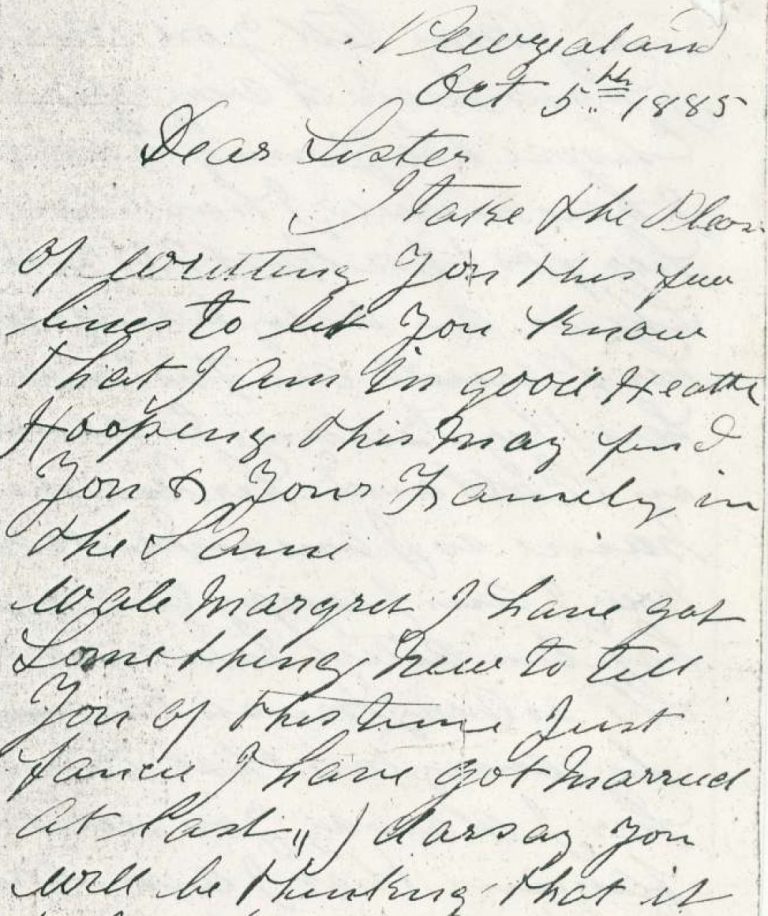 Newzealand
Oct 5th 1885
Dear Sister
I take the Pleas
of writting You this few
lines to let You Know
that I am in good Heatth
Hoopeing this may find
You & Your Family in
the Same
Wale Margret I have got
Something New to tell
You of this time Just
fancie I have got Married
at last,, I darsay You
will be thinking that it